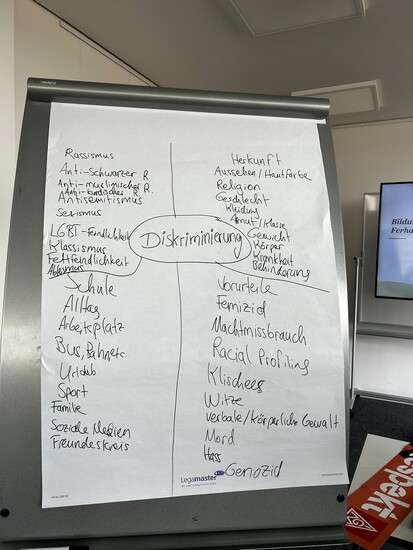 Rassismus
Anti-Schwarzer R.
Anti-muslimischer R.
Anti-kurdischer R.
Antisemitismus
Sexismus
LGBT-Feindlichkeit
Klassismus
Fettfeindlichkeit
Ableismus
Herkunft
Aussehen/Hautfarbe
Religion
Geschlecht
Kleidung
Armut/Klasse
Gewicht
Körper
Krankheit
Behinderung
Diskriminierung
Schule
Alltag
Arbeitsplatz
Bus, Bahn etc.
Urlaub
Sport
Familie
Soziale Medien
Freundeskreis
Vorurteile
Femizid
Machtmissbrauch
Racial Profiling
Klischees
Witze
verbale/körperliche Gewalt
Mord
Hass
Genozid
Legamaster
Bildu
Ferha
espekt!
IGM